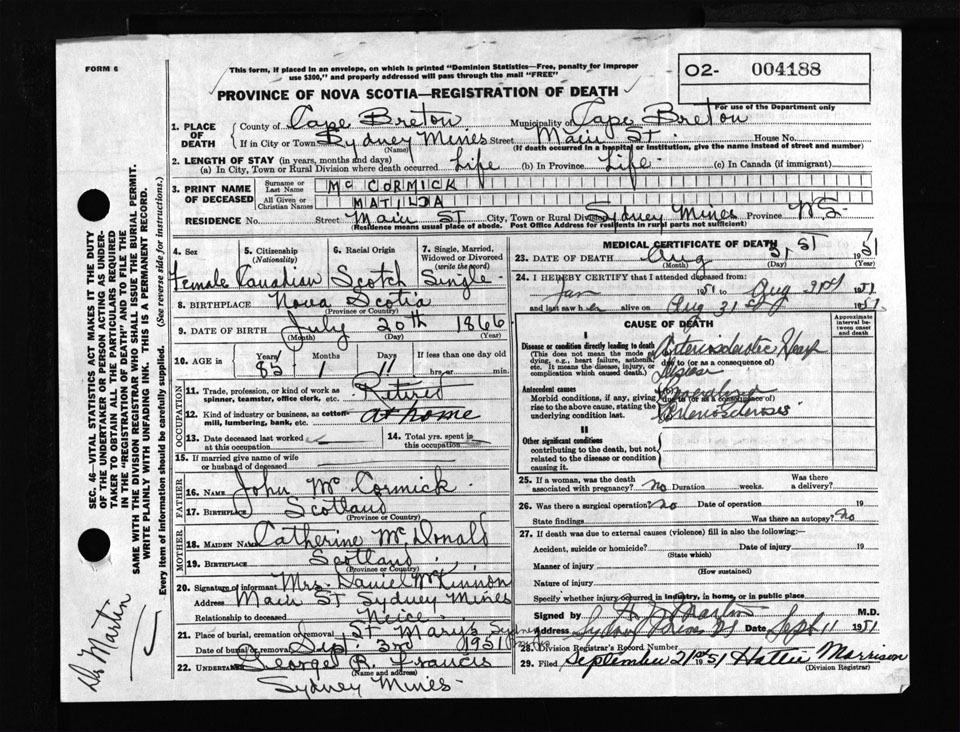 FORM 6
This form, if placed in an envelope, on which is printed "Dominion Statistics—Free, penalty for improper
use $300," and properly addressed will pass through the mail "FREE"
O2- 004188
PROVINCE OF NOVA SCOTIA—REGISTRATION OF DEATH
For use of the Department only
1. PLACE OF DEATH
County of Cape Breton Municipality of Cape Breton
If in City or Town Sydney Mines Street Main St. House No.
(Name) (If death occurred in a hospital or institution, give the name instead of street and number)
2. LENGTH OF STAY (in years, months and days)
(a) In City, Town or Rural Division where death occurred Life (b) In Province Life- (c) In Canada (if immigrant)
3. PRINT NAME OF DECEASED
Surname or Last Name Mc CORMICK
All Given or Christian Names MATILDA
RESIDENCE No. Street Main ST City, Town or Rural Division Sydney Mines Province N.S-
(Residence means usual place of abode. Post Office Address for residents in rural parts not sufficient)
4. Sex
5. Citizenship (Nationality)
6. Racial Origin
7. Single, Married, Widowed or Divorced (write the word)
Female Canadian Scotch Single-
8. BIRTHPLACE Nova Scotia
(Province or Country)
9. DATE OF BIRTH July 20th 1866
(Month) (Day) (Year)
10. AGE in Years Months Days If less than one day old
85 1 11 hrs. or min.
OCCUPATION
11. Trade, profession, or kind of work as spinner, teamster, office clerk, etc. Retired
12. Kind of industry or business, as cotton-mill, lumbering, bank, etc. at home
13. Date deceased last worked at this occupation
14. Total yrs. spent in this occupation
15. If married give name of wife or husband of deceased
FATHER
16. NAME John Mc Cormick-
17. Birthplace Scotland
(Province or Country)
MOTHER
18. MAIDEN NAME Catherine McDonald
19. Birthplace Scotland
(Province or Country)
20. Signature of informant Mrs. Daniel McKinnon
Address Main ST Sydney Mines
Relationship to deceased Neice.
21. Place of burial, cremation or removal St Mary's Sydney Mines
Date of burial or removal Sept. 3rd 1951
22. UNDERTAKER George R. Francis
(Name and address)
Sydney Mines-
MEDICAL CERTIFICATE OF DEATH
23. DATE OF DEATH Aug 31 ST 1951
(Month) (Day) (Year)
24. I HEREBY CERTIFY that I attended deceased from
Jan 1951 to Aug 31st 1951
and last saw her alive on Aug 31st 1951
CAUSE OF DEATH
Approximate interval between onset and death
I
Disease or condition directly leading to death
(This does not mean the mode of dying, e.g., heart failure, asthenia, etc. It means the disease, injury, or complication which caused death.)
Arteriosclerotic Heart
due to (or as a consequence of)
Antecedent causes
Morbid conditions, if any, giving rise to the above cause, stating the underlying condition last.
due to (or as a consequence of)
Arteriosclerosis
II
Other significant conditions
contributing to the death, but not related to the disease or condition causing it.
25. If a woman, was the death associated with pregnancy? No Duration weeks. Was there a delivery?
26. Was there a surgical operation? No Date of operation 19
State findings Was there an autopsy? No
27. If death was due to external causes (violence) fill in also the following:—
Accident, suicide or homicide? Date of injury 19
(State which)
Manner of injury
(How sustained)
Nature of injury
Specify whether injury occurred in industry, in home, or in public place
Signed by Martin M.D.
Address Sydney Mines NS Date Sept 11 1951
28. Division Registrar's Record Number
29. Filed September 21st 1951 Hattie Morrison
(Division Registrar)
SEC. 46—VITAL STATISTICS ACT MAKES IT THE DUTY
OF THE UNDERTAKER OR PERSON ACTING AS UNDER-
TAKER TO OBTAIN ALL THE PARTICULARS REQUIRED
IN THE "REGISTRATION OF DEATH" AND TO FILE THE
SAME WITH THE DIVISION REGISTRAR WHO SHALL ISSUE THE BURIAL PERMIT.
WRITE PLAINLY WITH UNFADING INK. THIS IS A PERMANENT RECORD.
Every item of information should be carefully supplied. (See reverse side for instructions.)
Dr Martin